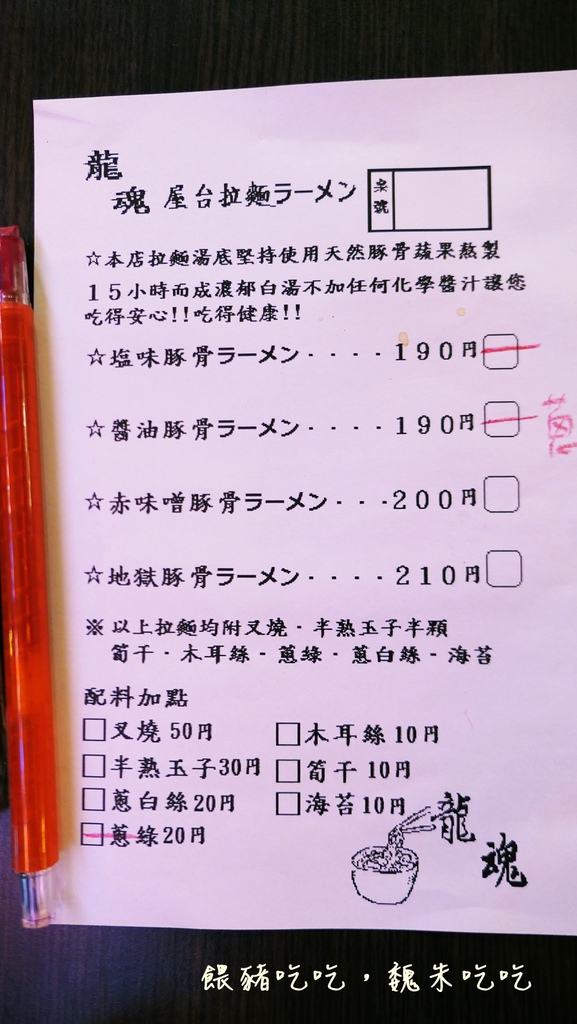 龍
魂 屋台拉麵ラーメン
桌號
☆本店拉麵湯底堅持使用天然豚骨蔬果熬製
15小時而成濃郁白湯不加任何化學醬汁讓您
吃得安心!!吃得健康!!
☆塩味豚骨ラーメン····190円
☆醬油豚骨ラーメン····190円
☆赤味噌豚骨ラーメン···200円
☆地獄豚骨ラーメン····210円
※以上拉麵均附叉燒·半熟玉子半顆
筍干·木耳絲·蔥綠·蔥白絲·海苔
配料加點
□叉燒50円 □木耳絲10円
□半熟玉子30円 □筍干10円
□蔥白絲20円 □海苔10円
□蔥綠20円
龍
魂
餵豬吃吃，魏朱吃吃